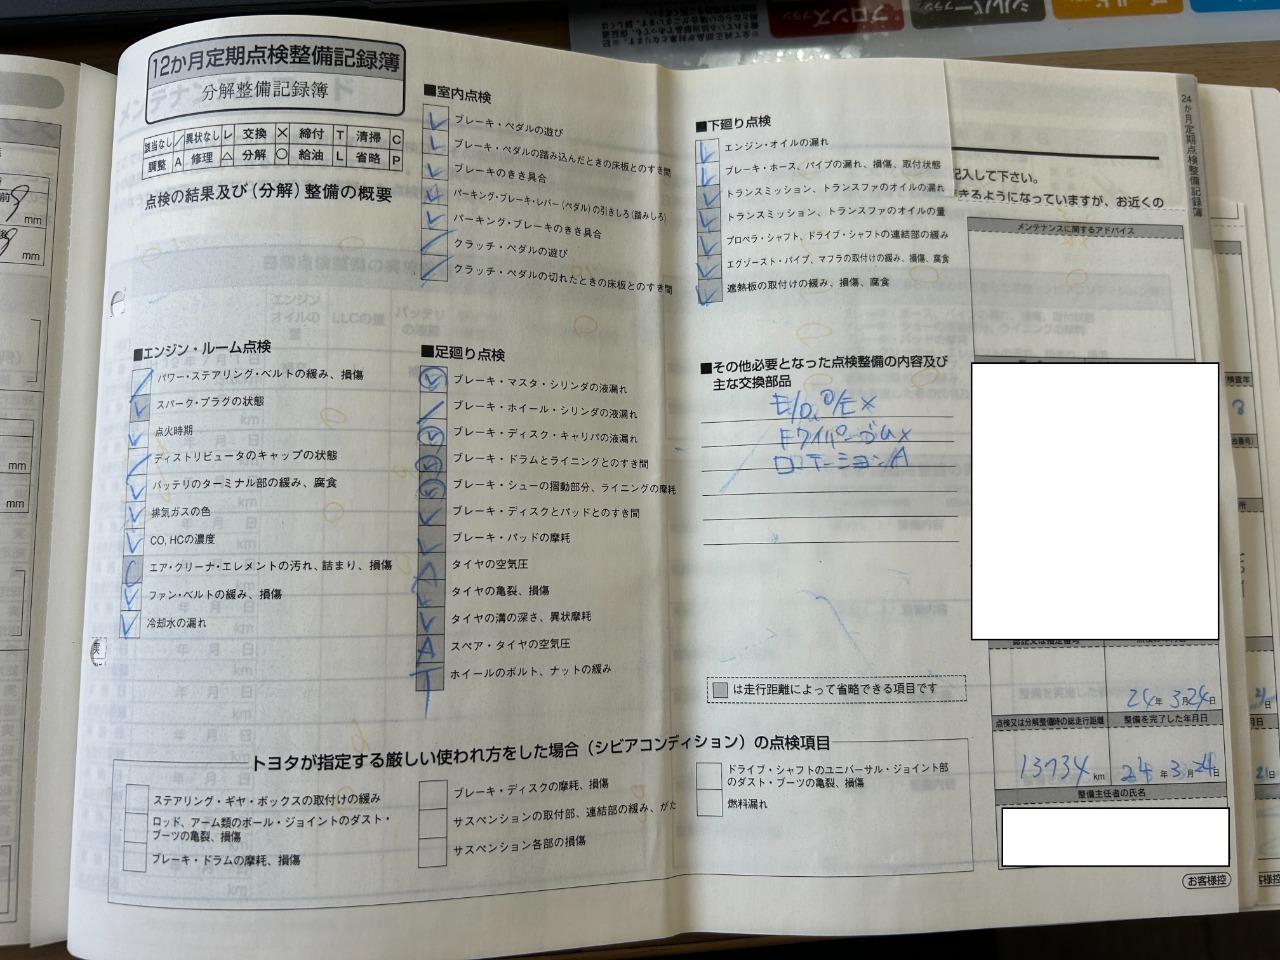 12か月定期点検整備記録簿
分解整備記録簿
該当なし ／ 異状なし レ 交換 × 締付 T 清掃 C
調整 A 修理 △ 分解 ○ 給油 L 省略 P
点検の結果及び(分解)整備の概要
■エンジン・ルーム点検
パワー・ステアリング・ベルトの緩み、損傷
スパーク・プラグの状態
点火時期
ディストリビュータのキャップの状態
バッテリのターミナル部の緩み、腐食
排気ガスの色
CO, HCの濃度
エア・クリーナ・エレメントの汚れ、詰まり、損傷
ファン・ベルトの緩み、損傷
冷却水の漏れ
■室内点検
ブレーキ・ペダルの遊び
ブレーキ・ペダルの踏み込んだときの床板とのすき間
ブレーキのきき具合
パーキング・ブレーキ・レバー(ペダル)の引きしろ(踏みしろ)
パーキング・ブレーキのきき具合
クラッチ・ペダルの遊び
クラッチ・ペダルの切れたときの床板とのすき間
■足廻り点検
ブレーキ・マスタ・シリンダの液漏れ
ブレーキ・ホイール・シリンダの液漏れ
ブレーキ・ディスク・キャリパの液漏れ
ブレーキ・ドラムとライニングとのすき間
ブレーキ・シューの摺動部分、ライニングの摩耗
ブレーキ・ディスクとパッドとのすき間
ブレーキ・パッドの摩耗
タイヤの空気圧
タイヤの亀裂、損傷
タイヤの溝の深さ、異状摩耗
A スペア・タイヤの空気圧
T ホイールのボルト、ナットの緩み
■下廻り点検
エンジン・オイルの漏れ
ブレーキ・ホース、パイプの漏れ、損傷、取付状態
トランスミッション、トランスファのオイルの漏れ
トランスミッション、トランスファのオイルの量
プロペラ・シャフト、ドライブ・シャフトの連結部の緩み
エグゾースト・パイプ、マフラの取付けの緩み、損傷、腐食
遮熱板の取付けの緩み、損傷、腐食
■その他必要となった点検整備の内容及び
主な交換部品
Fワイパーゴム×
ローテーションA
は走行距離によって省略できる項目です
トヨタが指定する厳しい使われ方をした場合(シビアコンディション)の点検項目
ステアリング・ギヤ・ボックスの取付けの緩み
ロッド、アーム類のボール・ジョイントのダスト・
ブーツの亀裂、損傷
ブレーキ・ドラムの摩耗、損傷
ブレーキ・ディスクの摩耗、損傷
サスペンションの取付部、連結部の緩み、がた
サスペンション各部の損傷
ドライブ・シャフトのユニバーサル・ジョイント部
のダスト・ブーツの亀裂、損傷
燃料漏れ
記入して下さい。
きるようになっていますが、お近くの
メンテナンスに関するアドバイス
24年 3月24日
点検又は分解整備時の総走行距離 整備を完了した年月日
13734 km 24年 3月24日
整備主任者の氏名
お客様控
24か月定期点検整備記録簿
ブロンズプラン
シルバープラン
mm
mm
mm
mm